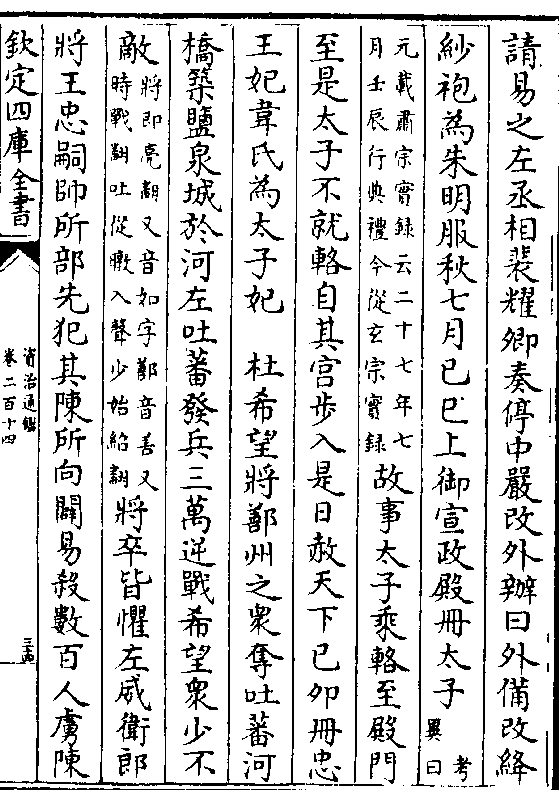 請易之左丞相裴耀卿奏停中嚴改外辦曰外備改絳
紗袍為朱明服秋七月己巳上御宣政殿冊太子考
異曰
元載肅宗實録云二十七年七
月壬辰行典禮今從玄宗實録
故事太子乘輅至殿門
至是太子不就輅自其宫步入是日赦天下己卯冊忠
王妃韋氏為太子妃　杜希望將鄯州之衆奪吐蕃河
橋築鹽泉城於河左吐蕃發兵三萬逆戰希望衆少不
敵
將即亮翻又音如字鄯音善又
時戰翻吐從暾入聲少始紹翻
將卒皆懼左威衛郎
將王忠嗣帥所部先犯其陳所向闢易殺數百人虜陳
欽定四庫全書
資治通鑑
卷二百十四
三十四